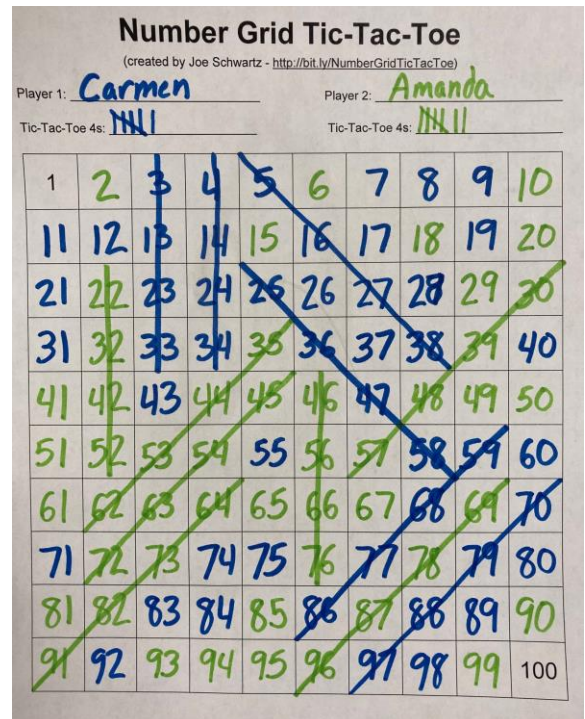 Number Grid Tic-Tac-Toe
(created by Joe Schwartz - http://bit.ly/NumberGridTicTacToe)
Player 1: Carmen Player 2: Amanda
Tic-Tac-Toe 4s: Tic-Tac-Toe 4s:
1 2 3 4 5 6 7 8 9 10
11 12 13 14 15 16 17 18 19 20
21 22 23 24 25 26 27 28 29 30
31 32 33 34 35 36 37 38 39 40
41 42 43 44 45 46 47 48 49 50
51 52 53 54 55 56 57 58 59 60
61 62 63 64 65 66 67 68 69 70
71 72 73 74 75 76 77 78 79 80
81 82 83 84 85 86 87 88 89 90
91 92 93 94 95 96 97 98 99 100